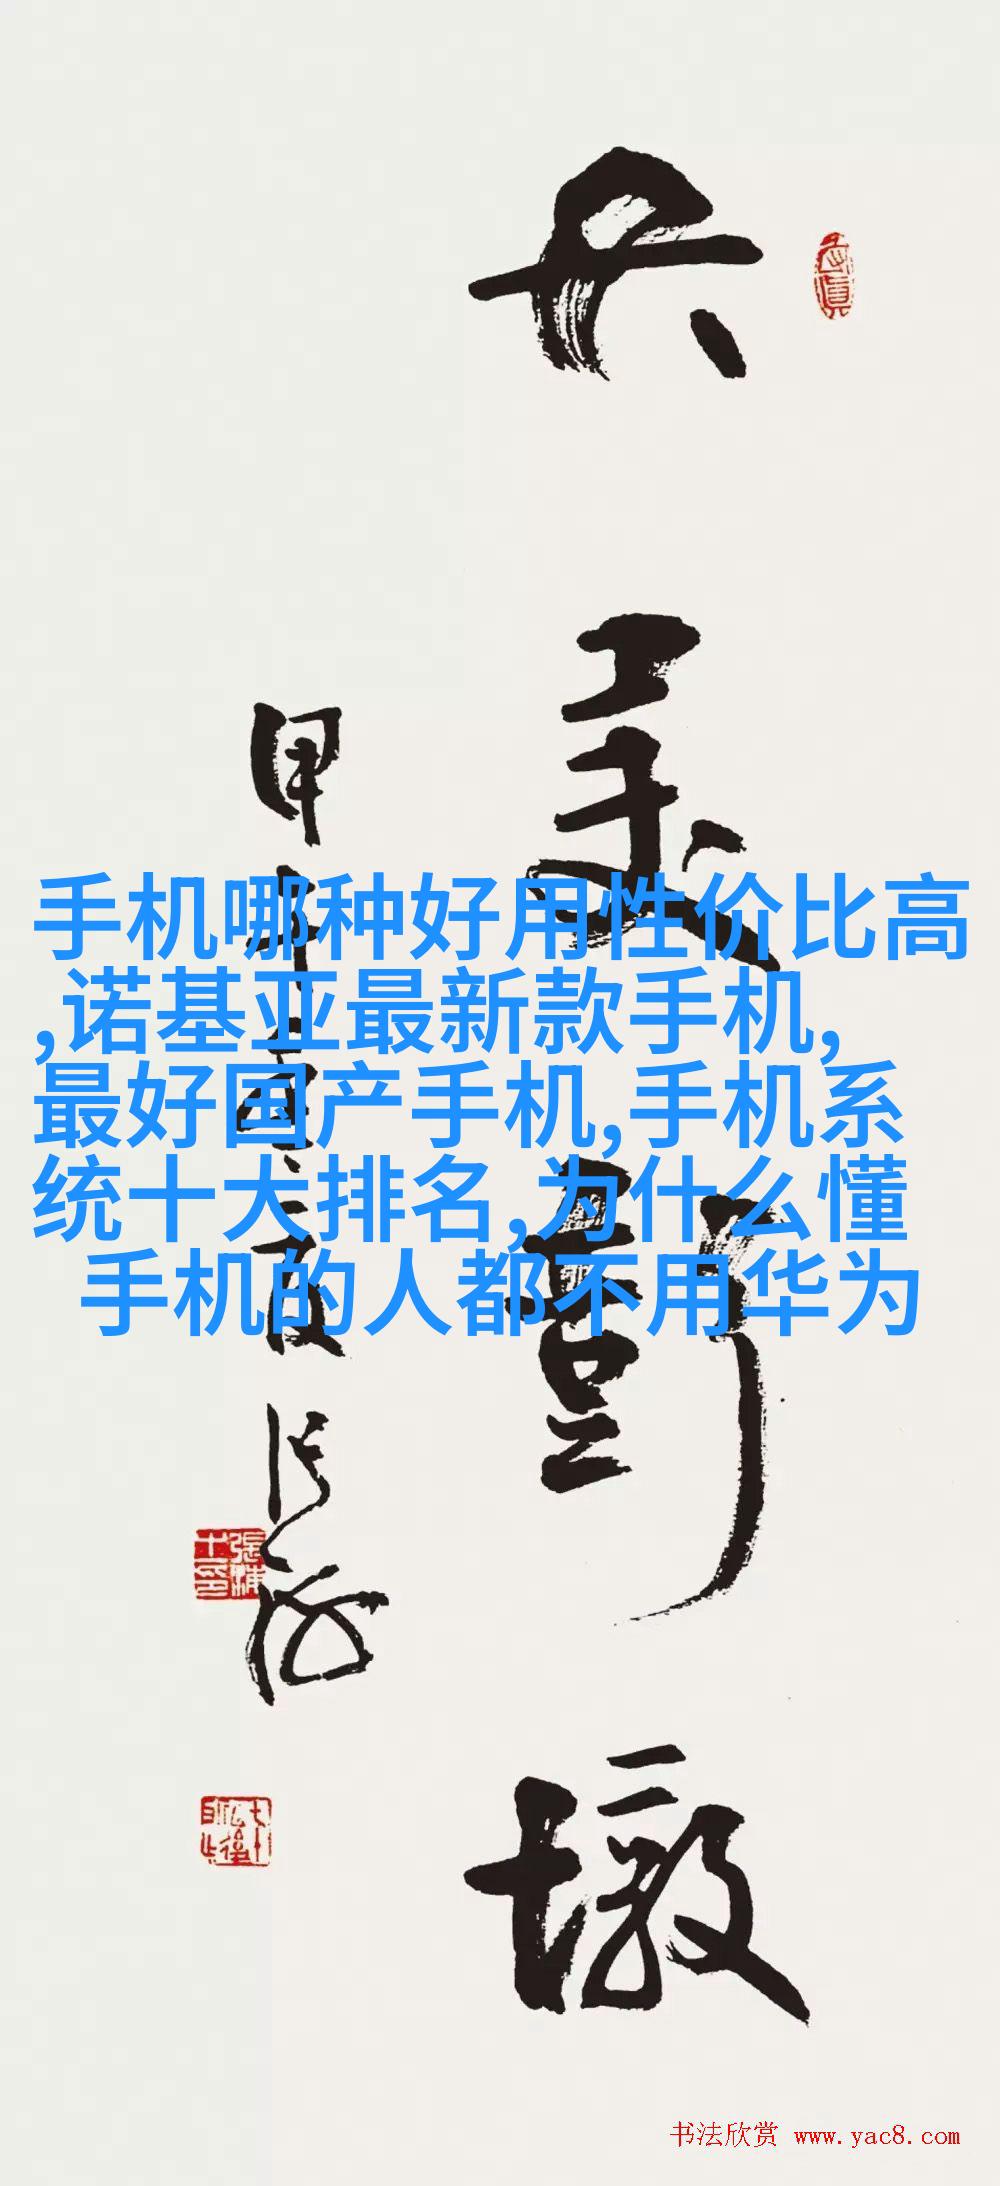 大美彭墩
甲午
手机哪种好用性价比高
,诺基亚最新款手机,
最好国产手机,手机系
统十大排名,为什么懂
手机的人都不用华为
书法欣赏 www.yac8.com